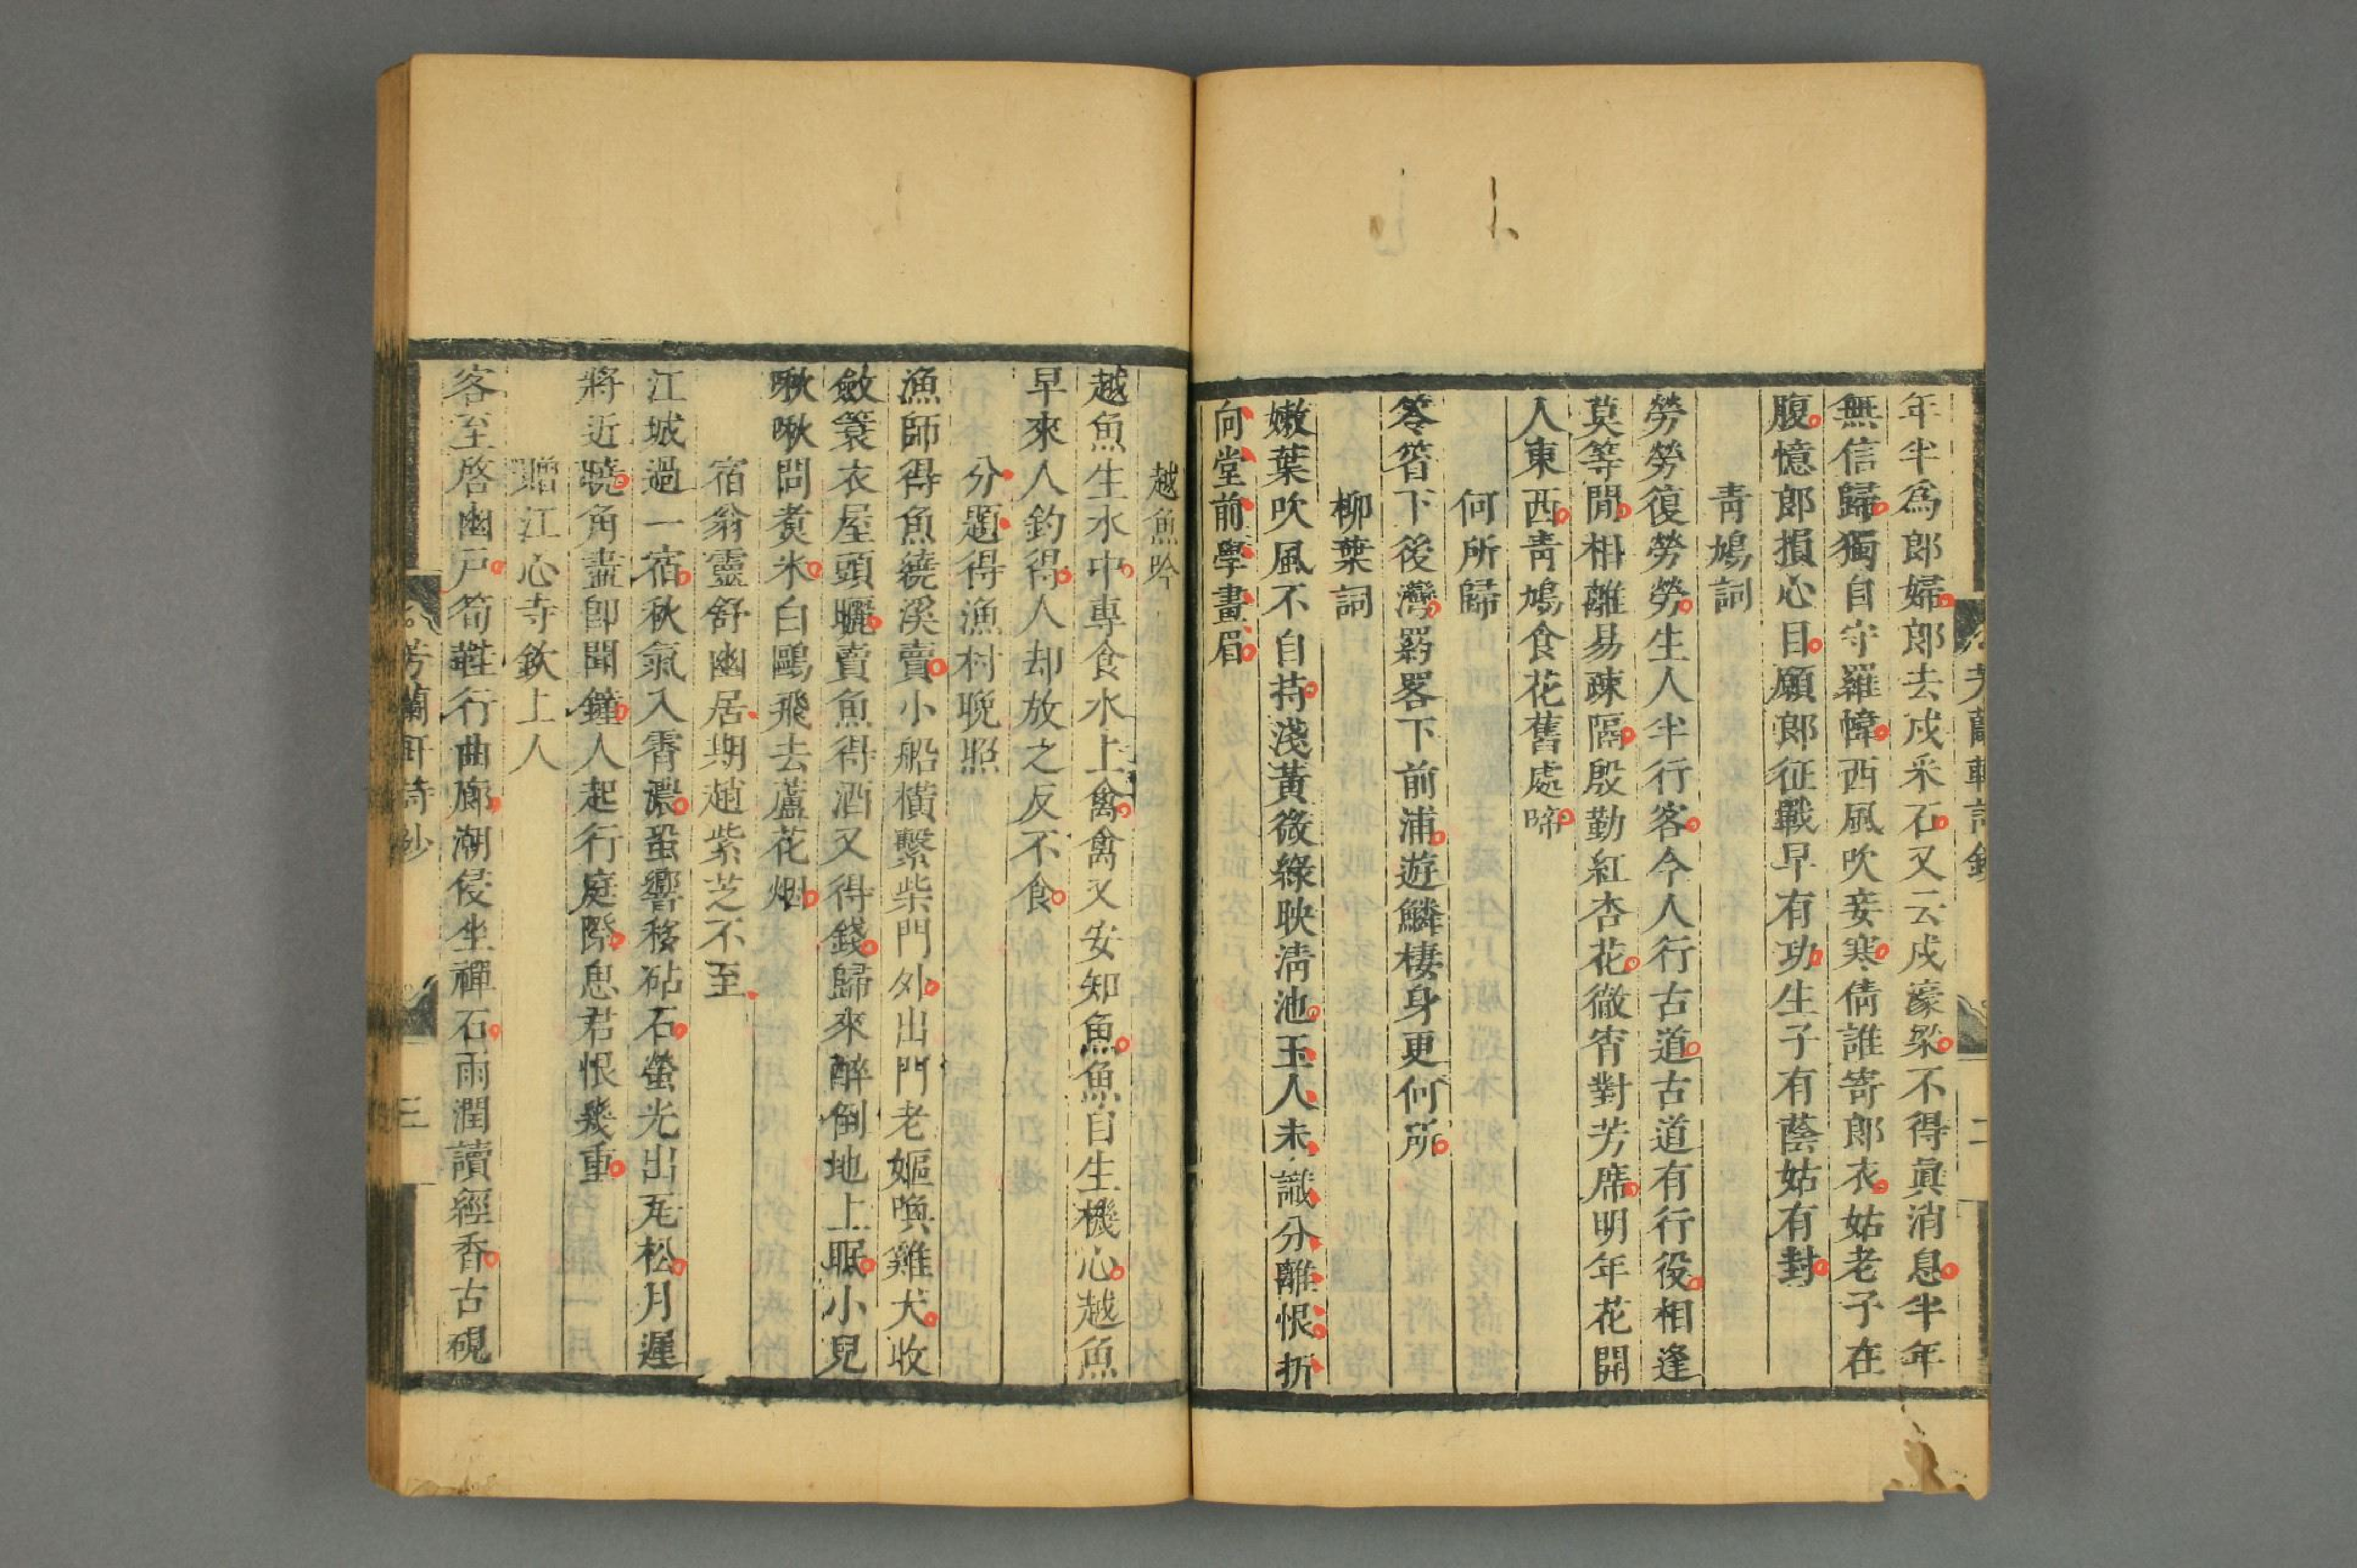 年半爲郎婦郎去戍采石又云戍濠梁不得眞消息半年
無信歸獨自守羅幃西風吹妾寒倩誰寄郎衣姑老子在
腹憶郎損心目願郎征戰早有功生子有蔭姑有封
靑鳩詞
勞勞復勞勞生人半行客今人行古道古道有行役相逢
莫等閒相離易疎隔殷勤紅杏花徹宵對芳席明年花開
人東西靑鳩食花舊處啼
何所歸
笭箵下後灣罶下前浦遊鱗棲身更何所
柳葉詞
嫩葉吹風不自持淺黃微綠映淸池玉人未識分離恨折
向堂前學畫眉
越魚吟
越魚生水中專食水上禽禽又安知魚魚自生機心越魚
早來人釣得人却放之反不食
分題得漁村晚照
漁師得魚繞溪賣小船橫繫柴門外出門老嫗喚雞犬收
斂簑衣屋頭曬賣魚得酒又得錢歸來醉倒地上眠小兒
啾啾問煑米白鷗飛去蘆花烟
宿翁靈舒幽居期趙紫芝不至
江城過一宿秋氣入霄濃蛩響移砧石螢光出瓦松月遲
將近曉角盡卽聞鐘人起行庭際思君恨幾重
贈江心寺欽上人
客至啓幽戶筍鞋行曲廊潮侵坐禪石雨潤讀經香古硯
芳蘭軒詩鈔
三